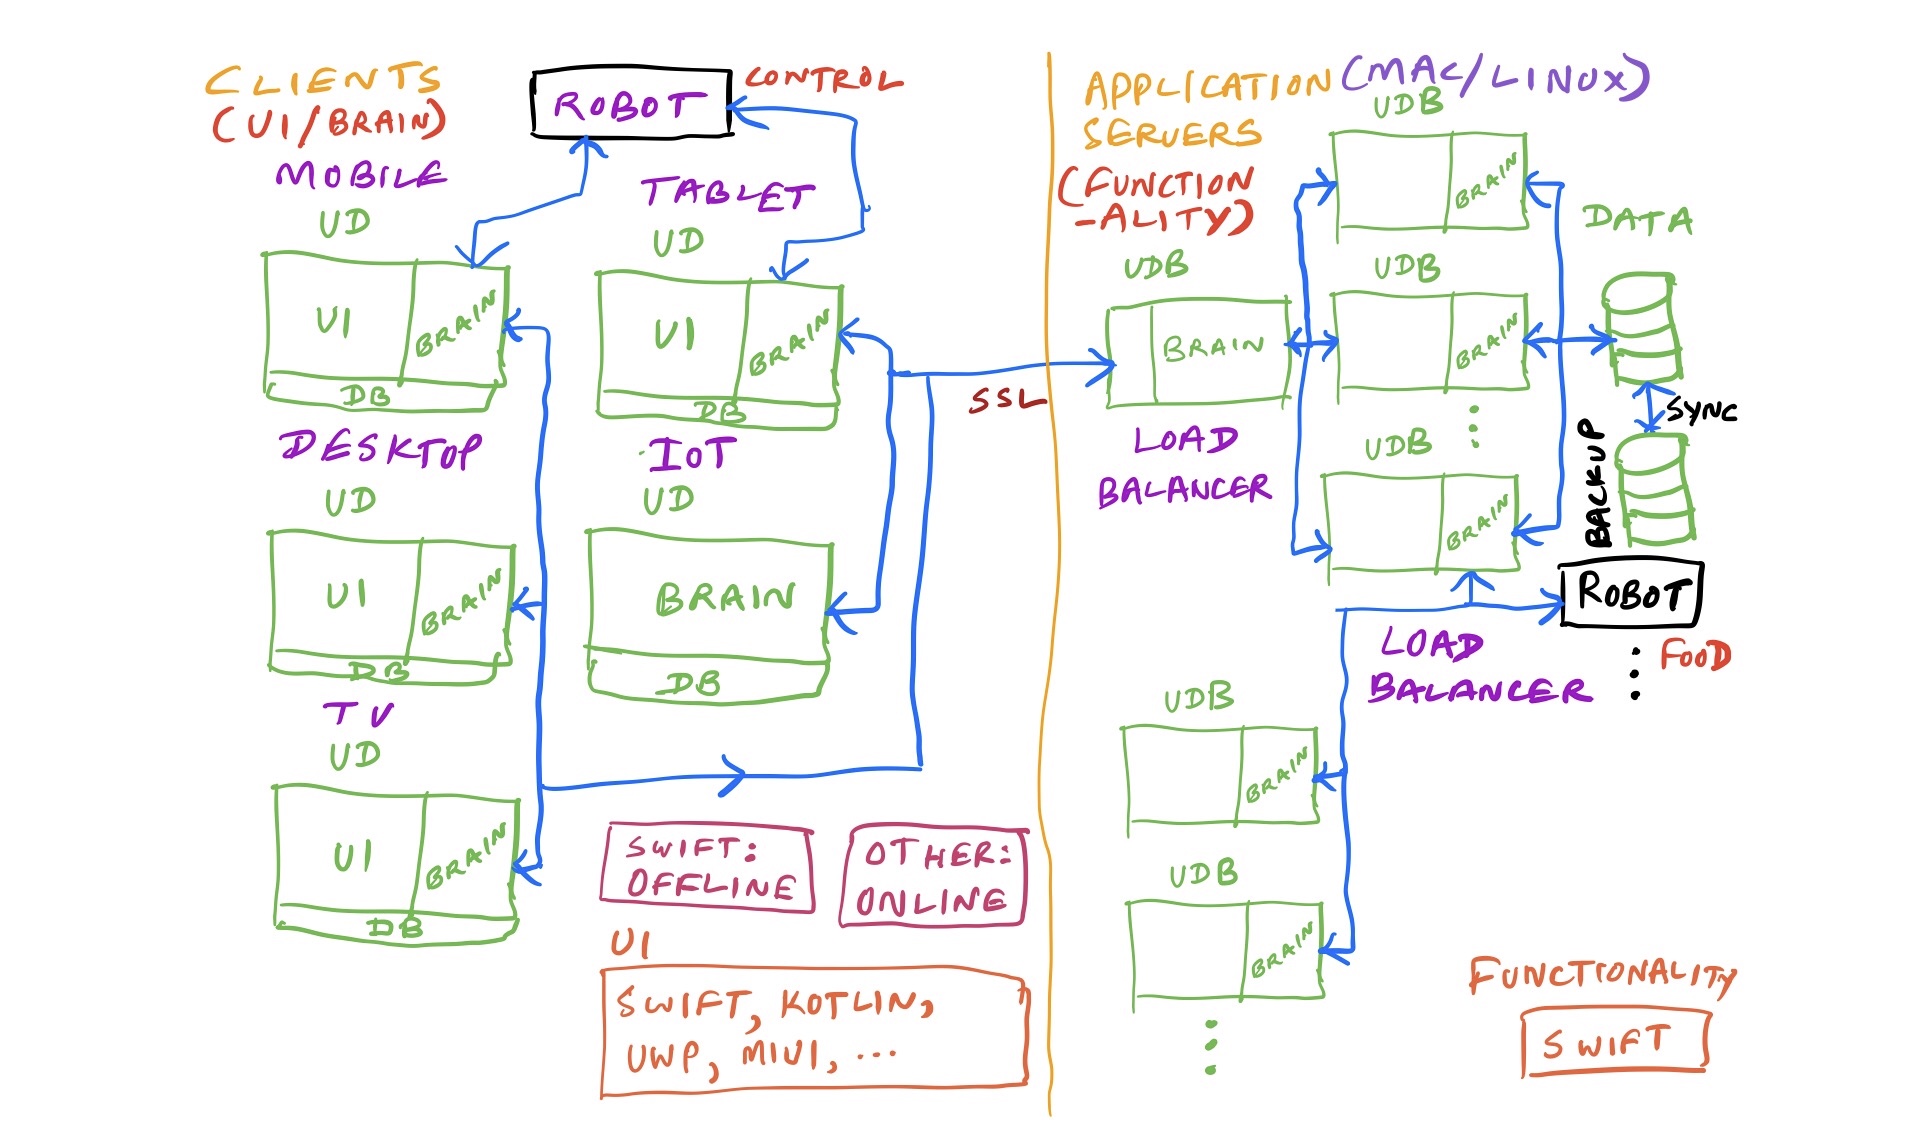 CLIENTS
(UI/BRAIN)
ROBOT
CONTROL
MOBILE
UD
UI
BRAIN
DB
TABLET
UD
UI
BRAIN
DB
DESKTOP
UD
UI
BRAIN
DB
IOT
UD
BRAIN
DB
TV
UD
UI
BRAIN
DB
SWIFT:
OFFLINE
OTHER:
ONLINE
UI
SWIFT, KOTLIN,
UWP, MIUI, ...
SSL
APPLICATION (MAC/LINUX)
SERVERS
(FUNCTION
-ALITY)
UDB
BRAIN
LOAD
BALANCER
UDB
BRAIN
UDB
BRAIN
UDB
BRAIN
DATA
SYNC
BACKUP
ROBOT
FOOD
LOAD
BALANCER
UDB
BRAIN
UDB
BRAIN
FUNCTIONALITY
SWIFT